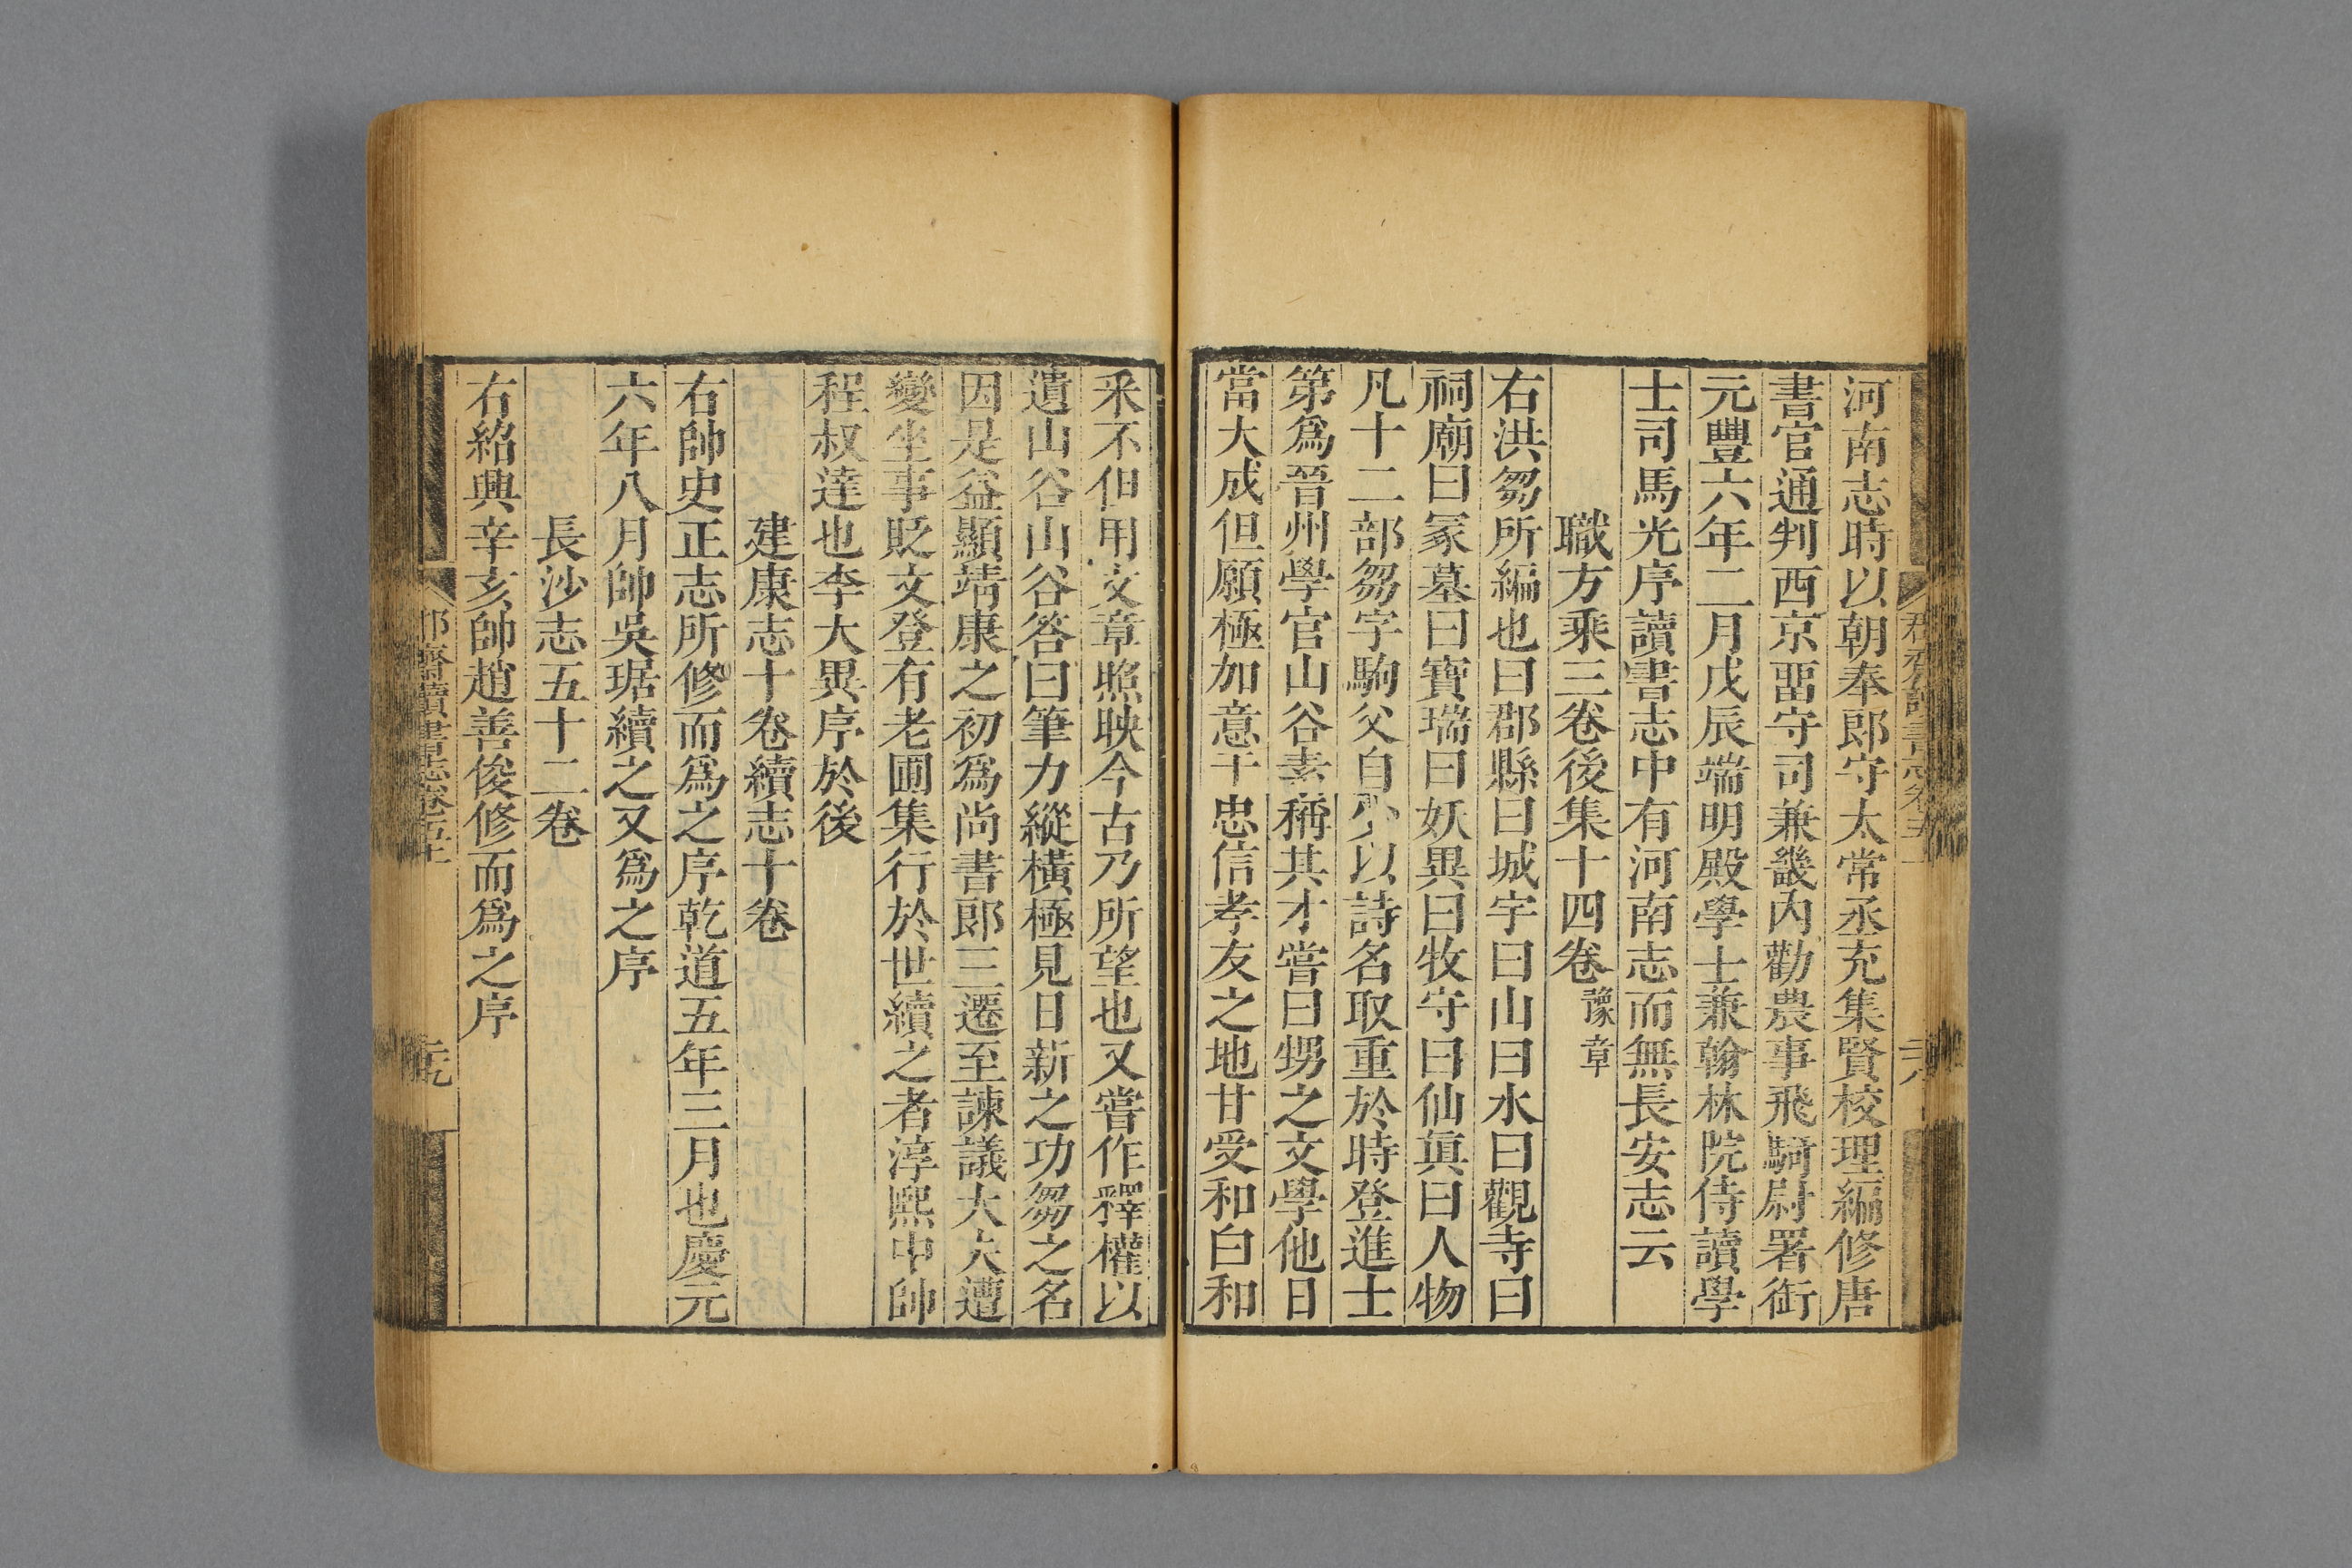 河南志時以朝奉郎守太常丞充集賢校理編修唐
書官通判西京畱守司兼畿内勸農事飛騎尉署銜
元豐六年二月戊辰端明殿學士兼翰林院侍讀學
士司馬光序讀書志中有河南志而無長安志云
職方乘三卷後集十四卷豫章
右洪芻所編也曰郡縣曰城宇曰山曰水曰觀寺曰
祠廟曰冢墓曰寶瑞曰妖異曰牧守曰仙眞曰人物
凡十二部芻字駒父自少以詩名取重於時登進士
第爲晉州學官山谷素稱其才嘗曰甥之文學他日
當大成但願極加意于忠信孝友之地甘受和白和
釆不但用文章照映今古乃所望也又嘗作釋權以
遺山谷山谷答曰筆力縱橫極見日新之功芻之名
因是益顯靖康之初爲尚書郎三遷至諫議大夫遭
變坐事貶文登有老圃集行於世續之者淳熙中帥
程叔達也李大異序於後
建康志十卷續志十卷
右帥史正志所修而爲之序乾道五年三月也慶元
六年八月帥吳琚續之又爲之序
長沙志五十二卷
右紹興辛亥帥趙善俊修而爲之序